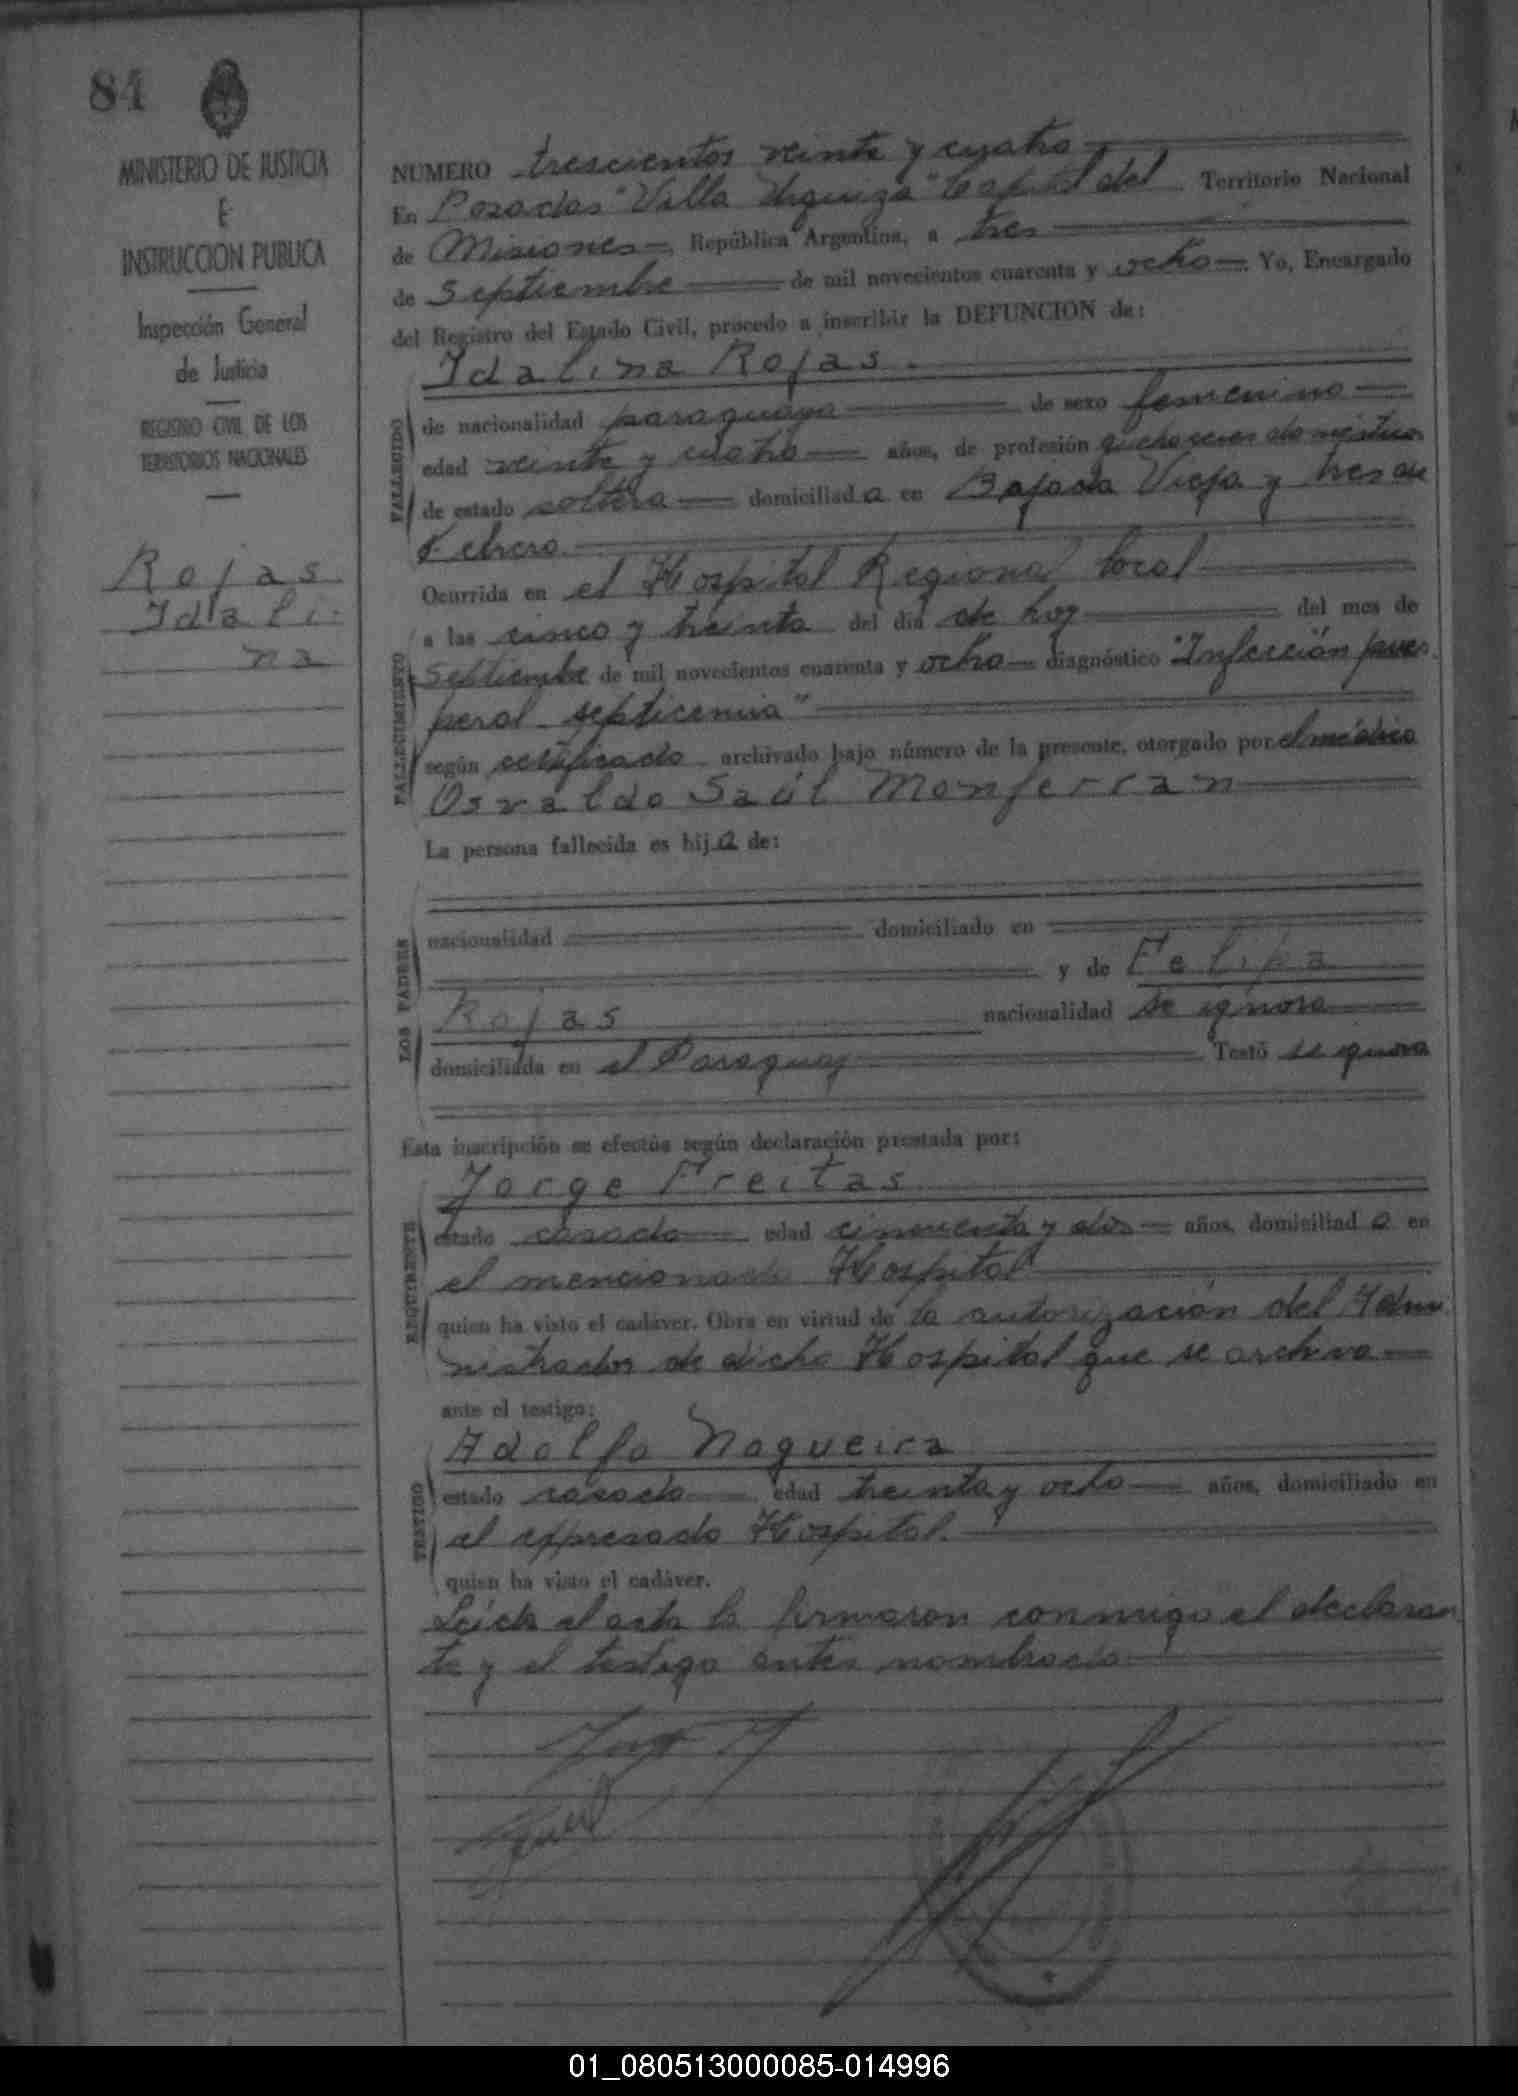 84
MINISTERIO DE JUSTICIA
E
INSTRUCCION PUBLICA
Inspección General
de Justicia
REGISTRO CIVIL DE LOS
TERRITORIOS NACIONALES
Rojas
Idali-
na
NUMERO trescientos veinte y cuatro
En Posadas "Villa Urquiza" Capital del Territorio Nacional
de Misiones República Argentina, a tres
de Septiembre de mil novecientos cuarenta y ocho Yo, Encargado
del Registro del Estado Civil, procedo a inscribir la DEFUNCION de:
Idalina Rojas.
FALLECIDO
de nacionalidad paraguaya de sexo femenino
edad veinte y cuatro años, de profesión quehaceres domésticos
de estado soltera domiciliada en Bajada Vieja y tres de
Febrero
FALLECIMIENTO
Ocurrida en el Hospital Regional local
a las cinco y treinta del día de hoy del mes de
Septiembre de mil novecientos cuarenta y ocho diagnóstico "Infección puer-
peral septicemia"
según certificado archivado bajo número de la presente, otorgado por el médico
Osvaldo Saúl Monferran
La persona fallecida es hija de:
LOS PADRES
nacionalidad domiciliado en
y de Felipa
Rojas nacionalidad se ignora
domiciliada en el Paraguay Testó se ignora
Esta inscripción se efectúa según declaración prestada por:
REQUIRENTE
Jorge Freitas
estado casado edad cincuenta y dos años, domiciliado en
el mencionado Hospital
quien ha visto el cadáver. Obra en virtud de la autorización del Admi-
nistrador de dicho Hospital que se archiva
ante el testigo:
TESTIGO
Adolfo Nogueira
estado casado edad treinta y ocho años, domiciliado en
el expresado Hospital.
quien ha visto el cadáver.
Leída el acta la firmaron conmigo el declaran
te y el testigo antes nombrado
01_080513000085-014996